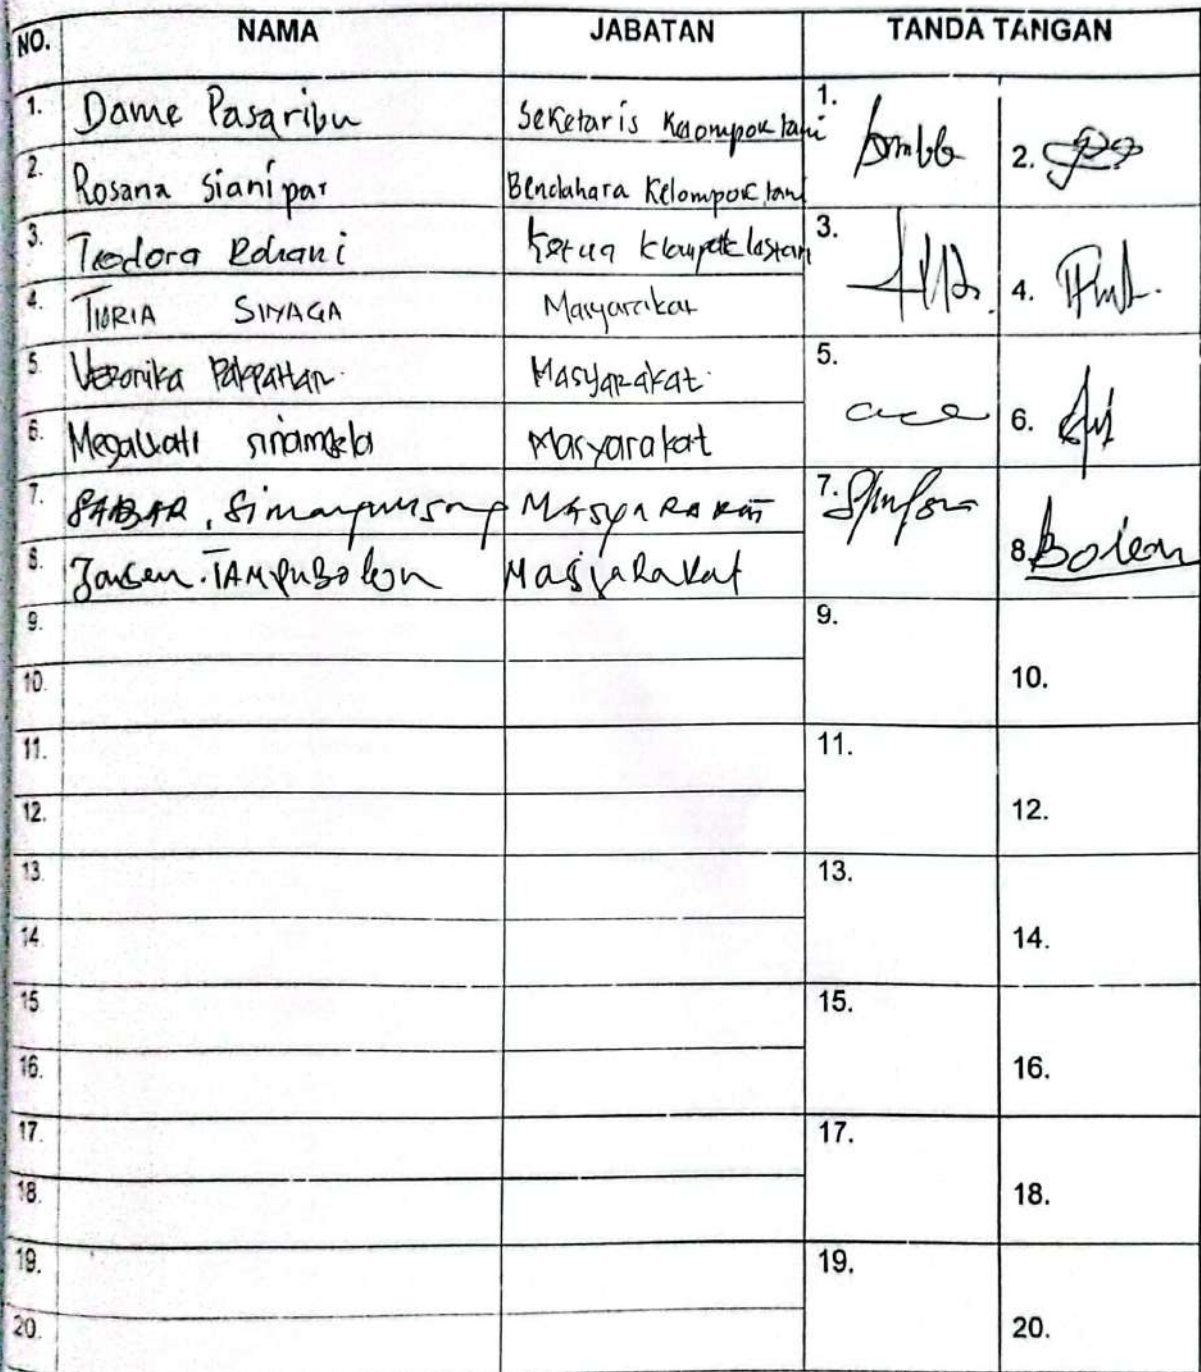 NO. NAMA JABATAN TANDA TANGAN
1. Dame Pasaribu Seketaris Kelompok tani 1.
2. Rosana Sianipar Bendahara Kelompok tani 2.
3. Teodora Rohani Ketua 3.
4. TIORIA SINAGA Masyarakat 4.
5. Veronika Pakpahan Masyarakat 5.
6. Megawati Masyarakat 6.
7. SABAR. Simangunsong MASyARAKAT 7.
8. Jansen. TAMPuBolon MasyaRakat 8. Bolon
9. 9.
10. 10.
11. 11.
12. 12.
13. 13.
14. 14.
15. 15.
16. 16.
17. 17.
18. 18.
19. 19.
20. 20.